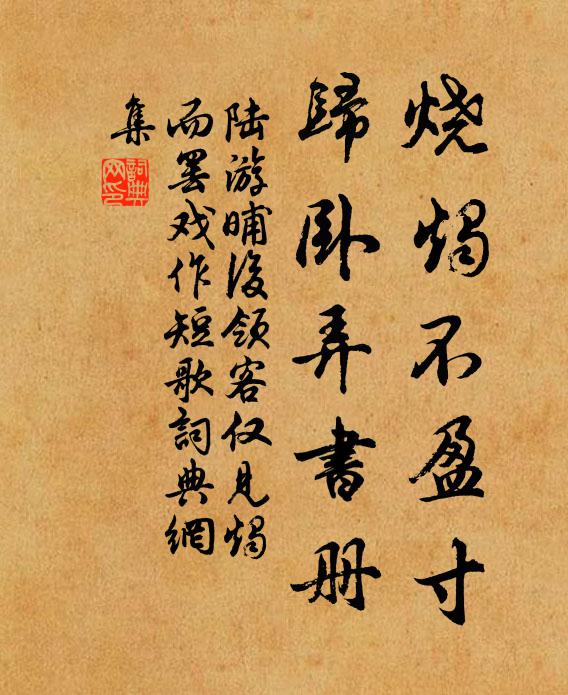 烧烛不盈寸
歸卧弄書册
陆游晡後领客仅見烛
而罢戏作短歌詞典網
集
詞典
网印